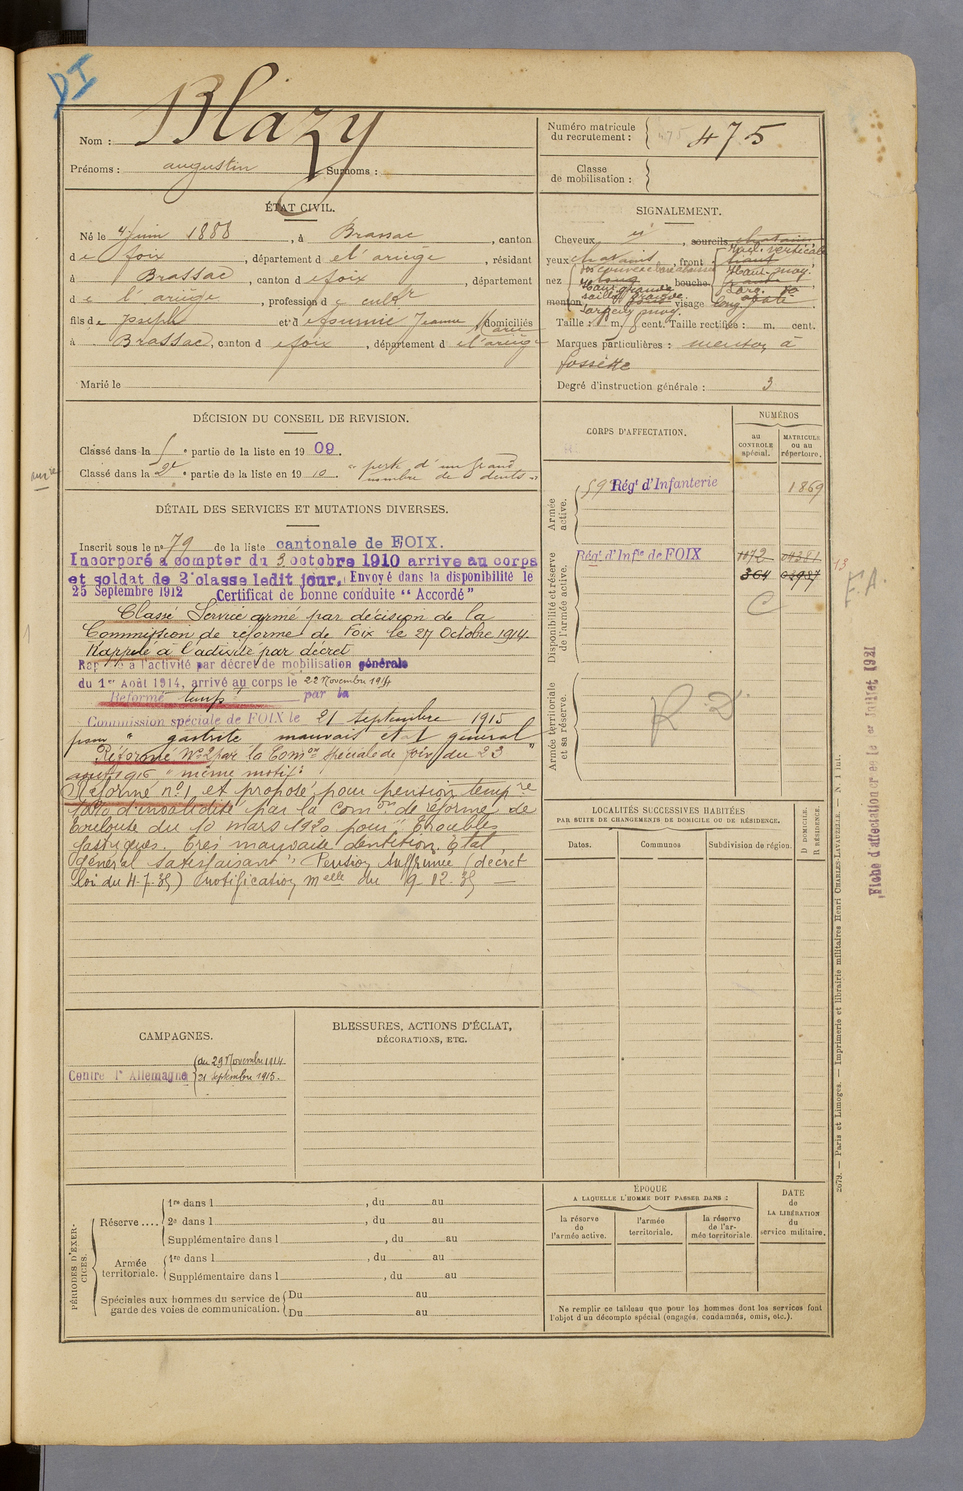 DI
Nom : Blazy
Prénoms : augustin Surnoms :
Numéro matricule
du recrutement : 475
Classe
de mobilisation :
ÉTAT CIVIL.
Né le 4 juin 1888, à Brassac, canton
de foix, département d e l'ariège, résidant
à Brassac, canton d e foix, département
d e l'ariège, profession d e cultr
fils de Joseph et d e Soumié Jeanne Marie domiciliés
à Brassac, canton d e foix, département d e l'ariège
Marié le
SIGNALEMENT.
Cheveux, sourcils chatains
yeux chatains, front
nez bouche
menton visage long ovale
Taille : 1 m. cent. Taille rectifiée : m. cent.
Marques particulières : menton à
fossette
Degré d'instruction générale : 3
DÉCISION DU CONSEIL DE REVISION.
Classé dans la 5e partie de la liste en 1909.
Classé dans la 2e partie de la liste en 1910. "perte d'un grand
nombre de dents"
DÉTAIL DES SERVICES ET MUTATIONS DIVERSES.
Inscrit sous le no 79 de la liste cantonale de FOIX.
Incorporé à compter du 3 octobre 1910 arrivé au corps
et soldat de 2e classe ledit jour. Envoyé dans la disponibilité le
25 Septembre 1912 Certificat de bonne conduite "Accordé"
Classé Service armé par décision de la
Commission de réforme de Foix le 27 Octobre 1914
Rappelé à l'activité par décret
Rappelé à l'activité par décret de mobilisation générale
du 1er Août 1914, arrivé au corps le 22 Novembre 1914
Réformé tempre par la
Commission spéciale de FOIX le 21 septembre 1915
pour "gastrite mauvais état général"
Réformé No 2 par la Comon spéciale de foix du 23
août 1916 "même motif"
Réformé no 1 et proposé pour pension tempre
10% d'invalidité par la Comon de réforme de
Toulouse du 10 mars 1920 pour "Troubles
gastriques. Très mauvaise dentition. Etat
général satisfaisant" Pension supprimée (décret
loi du 4-7-35) (notification melle du 9-12-35
CORPS D'AFFECTATION.
NUMÉROS
au
CONTROLE
spécial.
MATRICULE
ou au
répertoire.
Armée
active.
59e Régt d'Infanterie 1869
Disponibilité et réserve
de l'armée active.
Régt d'Infie de FOIX 1172
364
C
Armée territoriale
et sa réserve.
R D
F.A.
Fiche d'affectation créée le 1er Juillet 1921
LOCALITÉS SUCCESSIVES HABITÉES
PAR SUITE DE CHANGEMENTS DE DOMICILE OU DE RÉSIDENCE.
Dates. Communes Subdivision de région.
D DOMICILE.
R RÉSIDENCE.
CAMPAGNES.
Contre l'Allemagne du 29 Novembre 1914
21 septembre 1915.
BLESSURES, ACTIONS D'ÉCLAT,
DÉCORATIONS, ETC.
PÉRIODES D'EXER-
CICES.
Réserve .... 1re dans l , du au
2e dans l , du au
Supplémentaire dans l , du au
Armée
territoriale.
1re dans l , du au
Supplémentaire dans l , du au
Spéciales aux hommes du service de
garde des voies de communication.
Du au
Du au
ÉPOQUE
A LAQUELLE L'HOMME DOIT PASSER DANS :
la réserve
de
l'armée active.
l'armée
territoriale.
la réserve
de l'ar-
mée territoriale.
DATE
de
LA LIBÉRATION
du
service militaire.
Ne remplir ce tableau que pour les hommes dont les services font
l'objet d'un décompte spécial (engagés, condamnés, omis, etc.).
2079. — Paris et Limoges. — Imprimerie et librairie militaires Henri CHARLES-LAVAUZELLE. — N. 1 int.